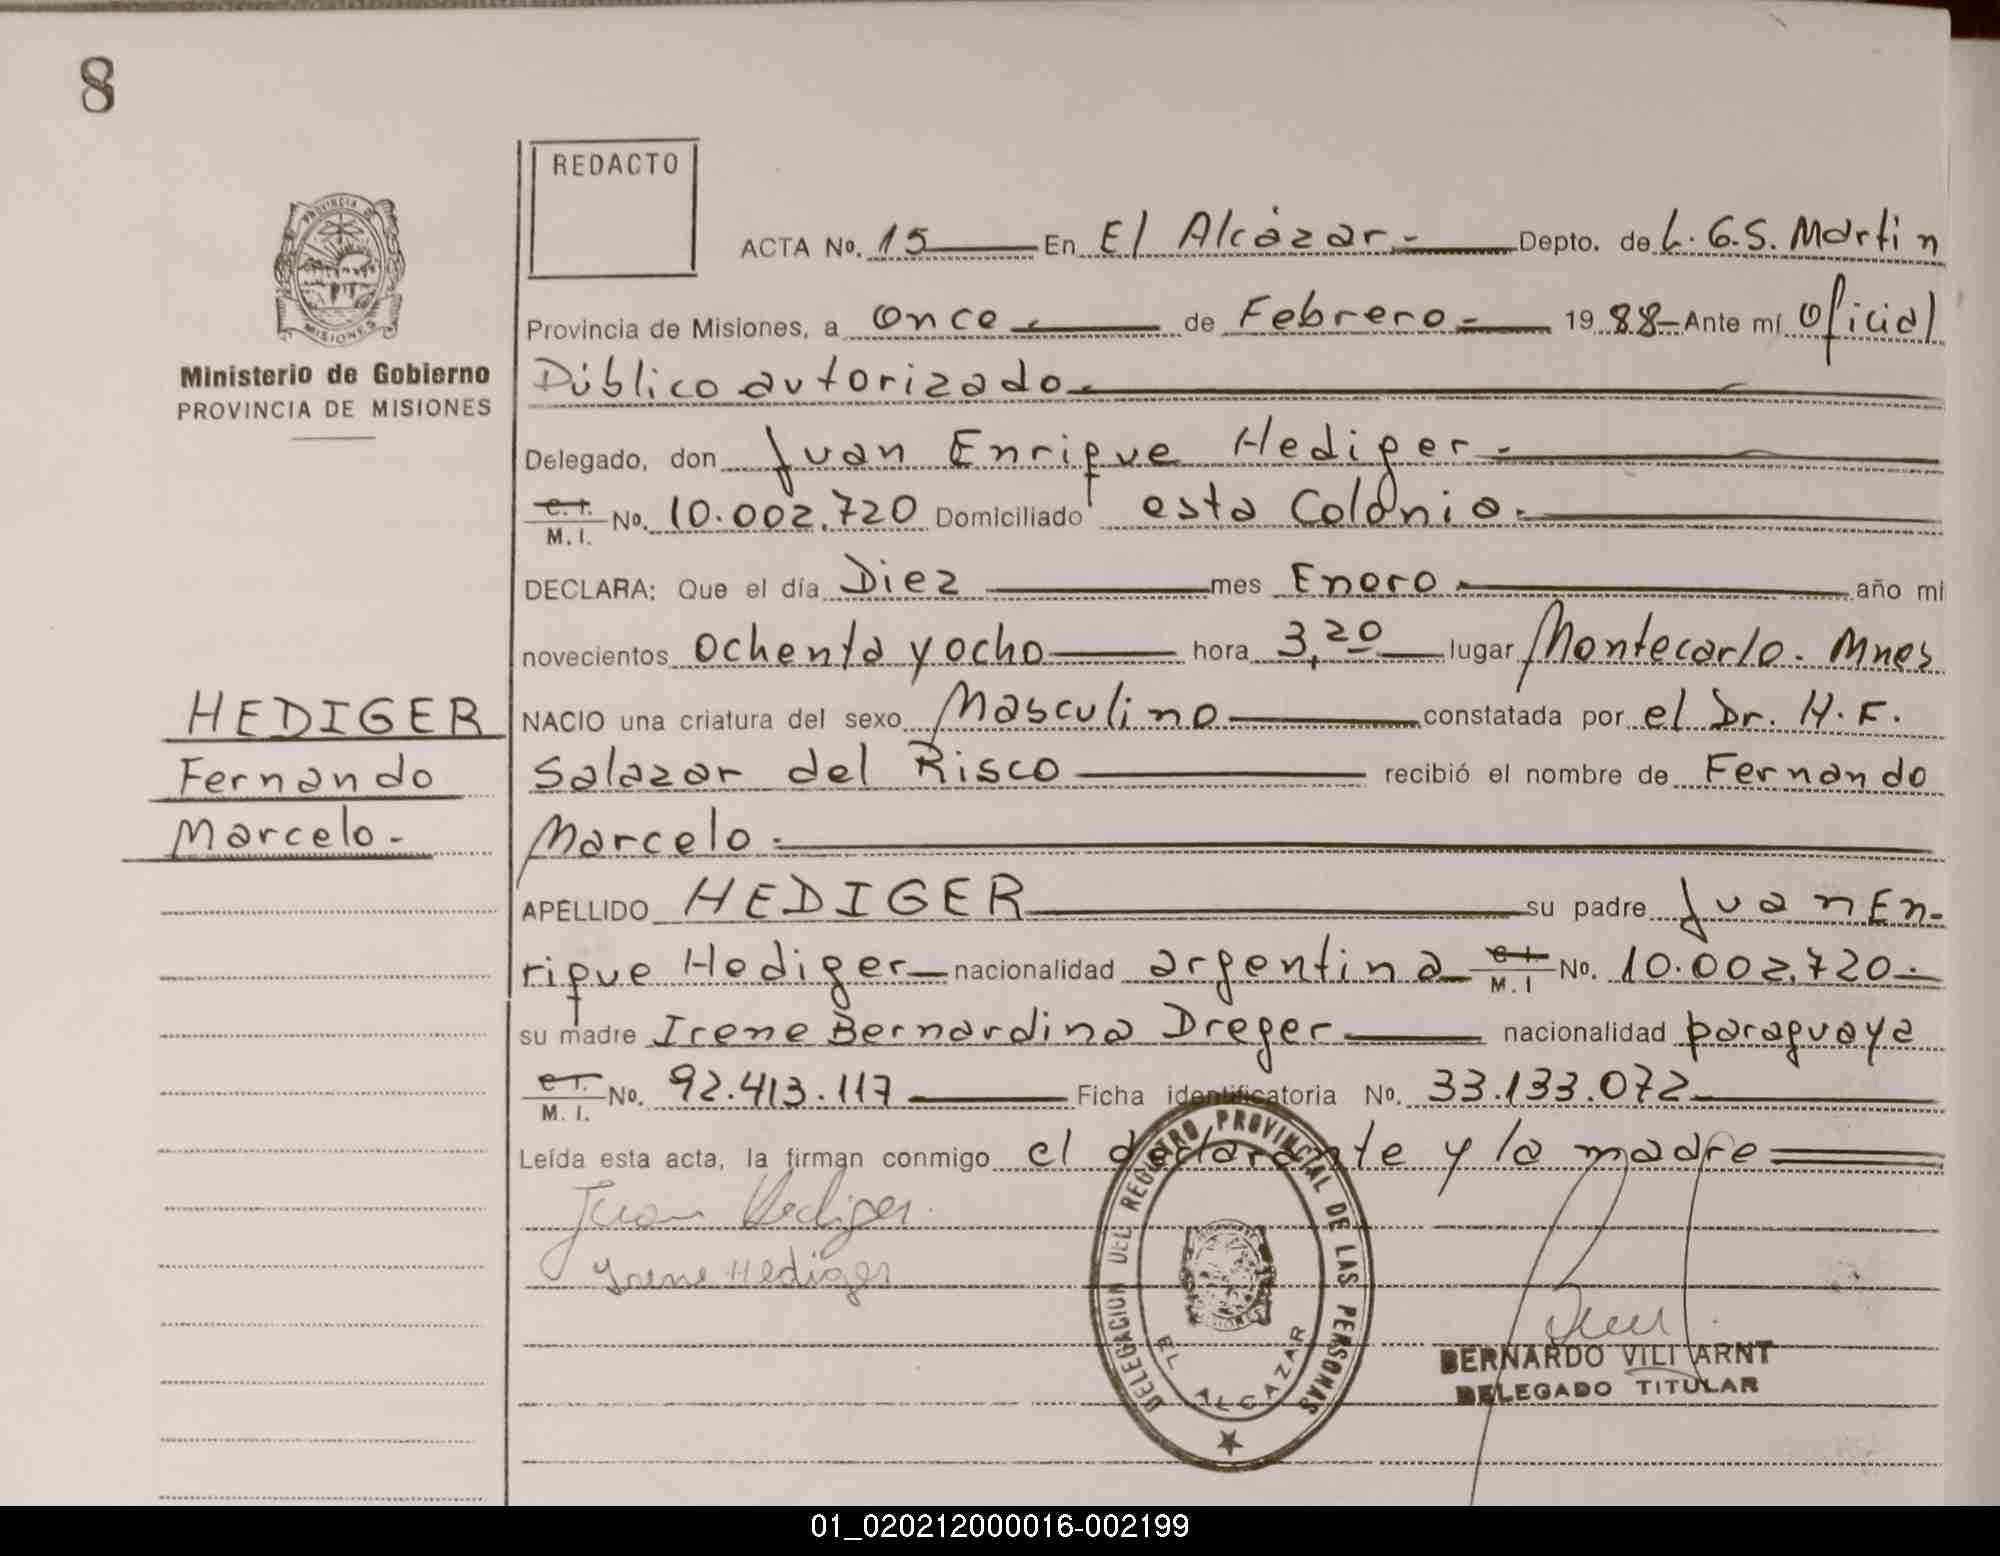 8
REDACTO
PROVINCIA DE
MISIONES
Ministerio de Gobierno
PROVINCIA DE MISIONES
ACTA No. 15 En El Alcázar.- Depto. de L.G.S. Martin
Provincia de Misiones, a once de Febrero.- 19 88- Ante mí Oficial
Público autorizado.
Delegado, don Juan Enrique Hediger.-
C.I. M.I. No. 10.002.720 Domiciliado esta Colonia.
DECLARA: Que el día Diez mes Enero año mi
novecientos ochenta y ocho hora 3,20 lugar Montecarlo. Mnes
HEDIGER
Fernando
Marcelo.-
NACIO una criatura del sexo Masculino constatada por el Dr. H.F.
Salazar del Risco recibió el nombre de Fernando
Marcelo.
APELLIDO HEDIGER su padre Juan En-
rique Hediger nacionalidad argentina C.I. M.I No. 10.002.720.-
su madre Irene Bernardina Dreger nacionalidad paraguaya
C.I. M.I. No. 92.413.117 Ficha identificatoria No. 33.133.072
Leída esta acta, la firman conmigo el declarante y la madre
Juan Hediger.
Irene Hediger
DELEGACION DEL REGISTRO PROVINCIAL DE LAS PERSONAS
EL ALCAZAR
BERNARDO VILI ARNT
DELEGADO TITULAR
01_020212000016-002199